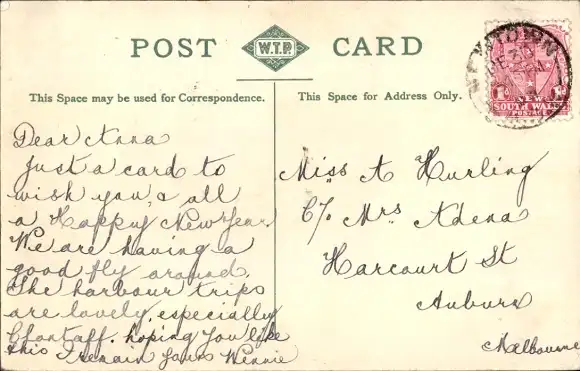 POST W.T.P. CARD
This Space may be used for Correspondence.
This Space for Address Only.
NEWTOWN
1D 1D
NEW
SOUTH WALES
POSTAGE
Dear Anna
Just a card to
wish you, & all
a Happy New Year
We are having a
good fly around.
The harbour trips
are lovely, especially
hoping you like
this I remain yours Winnie
Miss A Hurling
C/o Mrs Adena
Harcourt St
Auburn
Melbourne